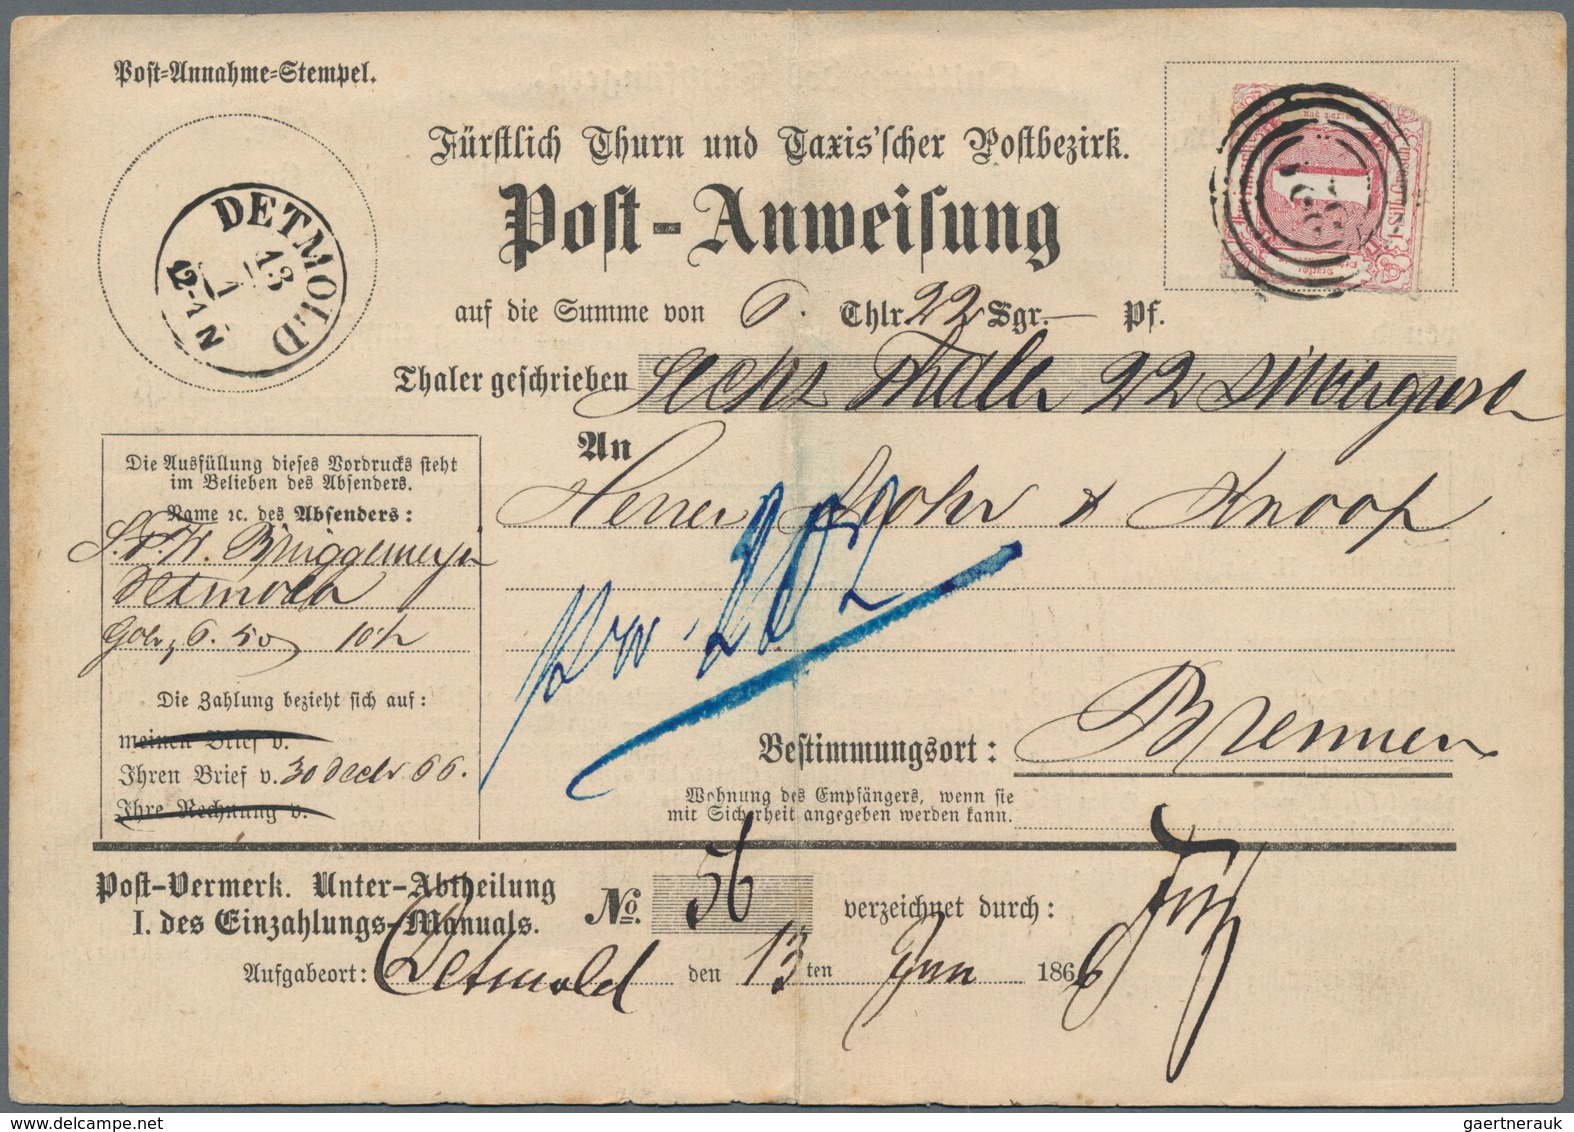 Post-Annahme-Stempel.
DETMOLD
13
1
12-1 N
Fürstlich Thurn und Taxis'scher Postbezirk.
Post-Anweisung
auf die Summe von 6. Thlr. 22 Sgr. — Pf.
Thaler geschrieben Sechs Thaler 22 Silbergrosch
1
An
Herren & Knoop
Die Ausfüllung dieses Vordrucks steht
im Belieben des Absenders.
Name ꝛc. des Absenders:
Brüggemeyer
Detmold
6. 50
Die Zahlung bezieht sich auf:
meinen Brief v.
Ihren Brief v. 30 Decbr 66.
Ihre Rechnung v.
202
Bestimmungsort: Bremen
Wohnung des Empfängers, wenn sie
mit Sicherheit angegeben werden kann.
Post-Vermerk. Unter-Abtheilung
I. des Einzahlungs-Manuals.
No. 56 verzeichnet durch:
Aufgabeort: Detmold den 13 ten Jan 1866
gaertnerauk / delcampe.net